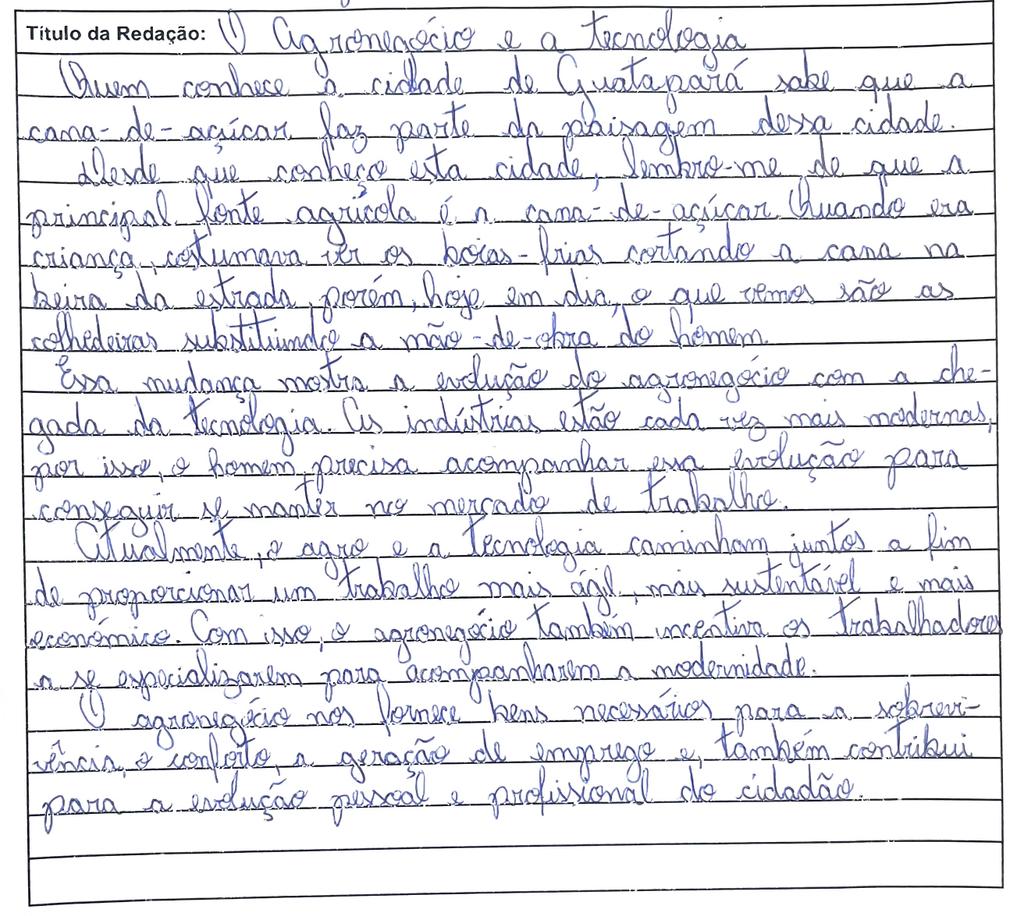 Título da Redação: O Agronegócio e a tecnologia
Quem conhece a cidade de Guatapará sabe que a
cana-de-açúcar faz parte da paisagem dessa cidade.
Desde que conheço esta cidade, lembro-me de que a
principal fonte agrícola é a cana-de-açúcar. Quando era
criança, costumava ver os boias-frias cortando a cana na
beira da estrada, porém, hoje em dia, o que vemos são as
colhedeiras substituindo a mão-de-obra do homem.
Essa mudança mostra a evolução do agronegócio com a che-
gada da tecnologia. As indústrias estão cada vez mais modernas,
por isso, o homem precisa acompanhar essa evolução para
conseguir se manter no mercado de trabalho.
Atualmente, o agro e a tecnologia caminham juntos a fim
de proporcionar um trabalho mais ágil, mais sustentável e mais
econômico. Com isso, o agronegócio também incentiva os trabalhadores
a se especializarem para acompanharem a modernidade.
O agronegócio nos fornece bens necessários para a sobrevi-
vência, o conforto, a geração de emprego e, também contribui
para a evolução pessoal e profissional do cidadão.